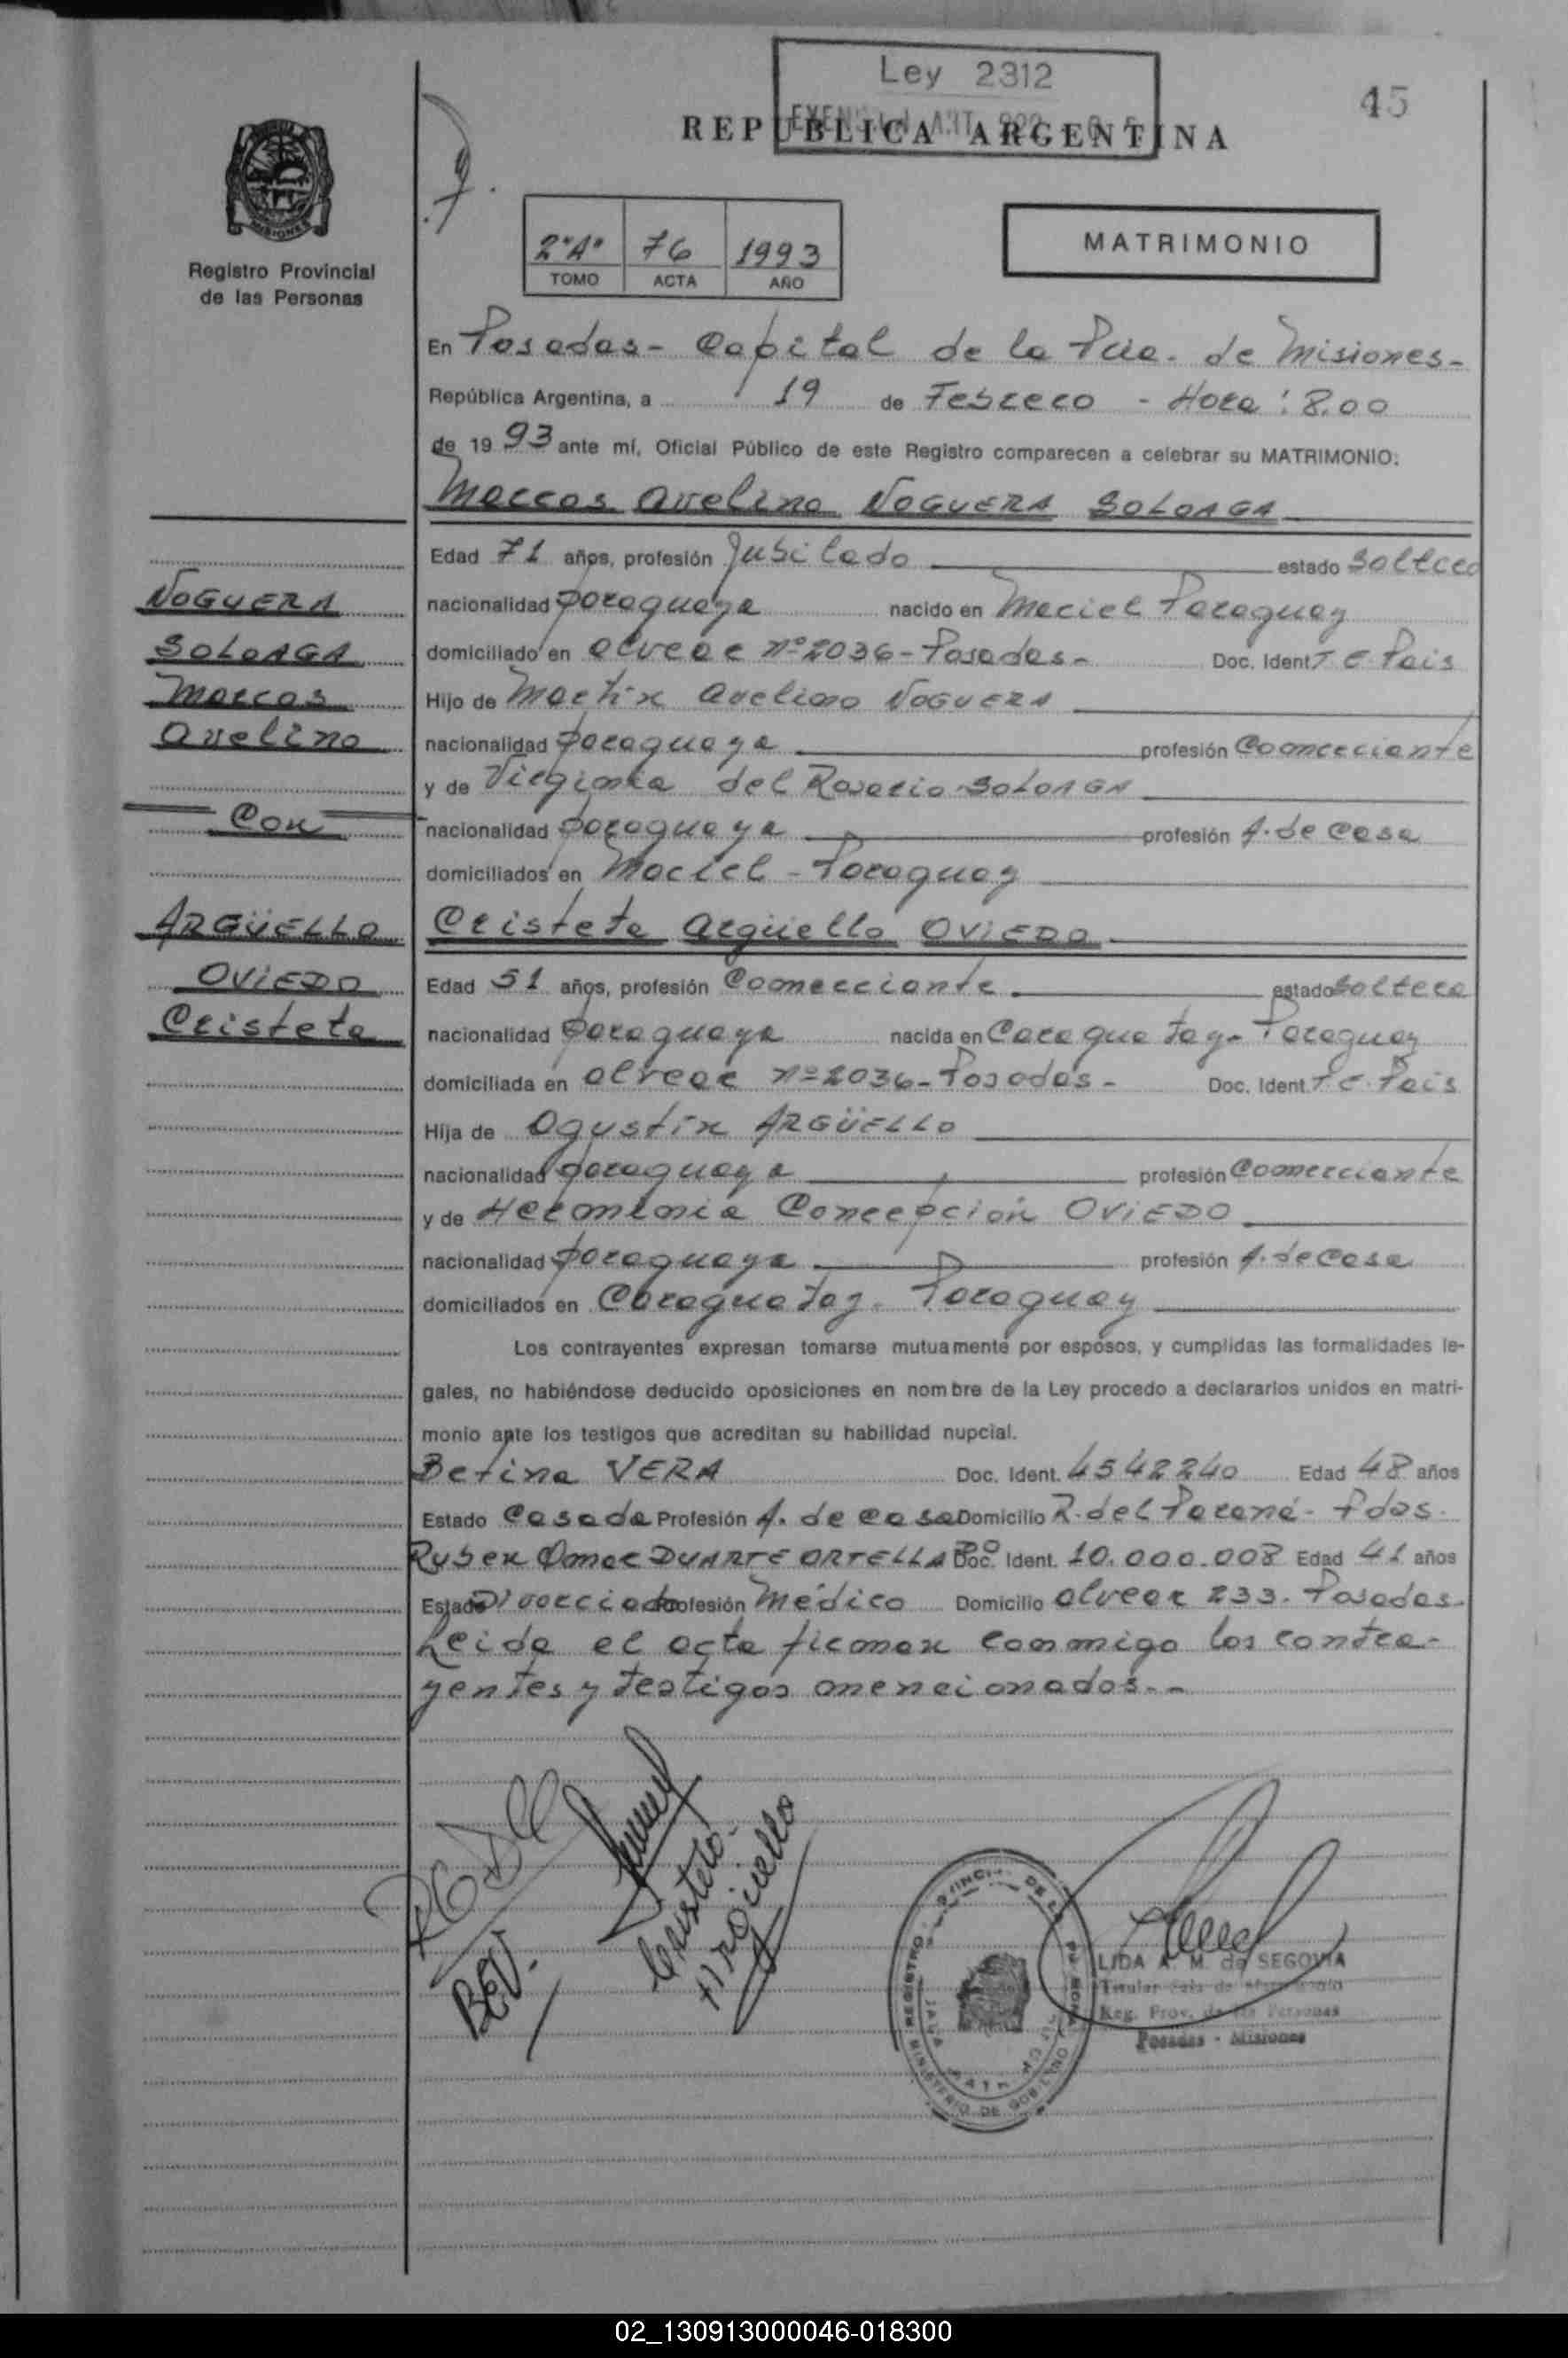 Ley 2312
45
REPUBLICA ARGENTINA
MISIONES
Registro Provincial
de las Personas
2º"A" 76 1993
TOMO ACTA AÑO
MATRIMONIO
En Posadas - Capital de la Pcia. de Misiones-
República Argentina, a 19 de Febrero - Hora: 8.00
de 1993 ante mí, Oficial Público de este Registro comparecen a celebrar su MATRIMONIO:
Marcos Avelino NOGUERA SOLOAGA
Edad 71 años, profesión Jubilado estado Soltero
nacionalidad paraguaya nacido en Maciel Paraguay
domiciliado en Alvear Nº 2036 - Posadas - Doc. Ident. T C. Pais
Hijo de Martin Avelino NOGUERA
nacionalidad paraguaya profesión Comerciante
y de Virginia del Rosario SOLOAGA
nacionalidad paraguaya profesión A. de casa
domiciliados en Maciel - Paraguay
Cristeta Argüello OVIEDO
Edad 51 años, profesión Comerciante estado Soltera
nacionalidad paraguaya nacida en Caraguatay - Paraguay
domiciliada en Alvear Nº 2036 - Posadas - Doc. Ident. T C. Pais
Hija de Agustín ARGÜELLO
nacionalidad paraguaya profesión Comerciante
y de Herminia Concepción OVIEDO
nacionalidad paraguaya profesión A. de casa
domiciliados en Caraguatay. Paraguay
Los contrayentes expresan tomarse mutuamente por esposos, y cumplidas las formalidades le-
gales, no habiéndose deducido oposiciones en nombre de la Ley procedo a declararlos unidos en matri-
monio ante los testigos que acreditan su habilidad nupcial.
Betina VERA Doc. Ident. 4542240 Edad 48 años
Estado Casada Profesión A. de casa Domicilio R. del Paraná - Pdas.
Ruben Omar DUARTE ORTELLADO Doc. Ident. 10.000.008 Edad 41 años
Estado Divorciado Profesión Médico Domicilio Alvear 233. Posadas-
Leida el acta firman conmigo los contra-
yentes y testigos mencionados.-
NOGUERA
SOLOAGA
Marcos
Avelino
Con
ARGÜELLO
OVIEDO
Cristeta
BEV.
Cristeta
Argüello
LIDA A. M. de SEGOVIA
Titular
Reg. Prov. de las Personas
Posadas - Misiones
02_130913000046-018300